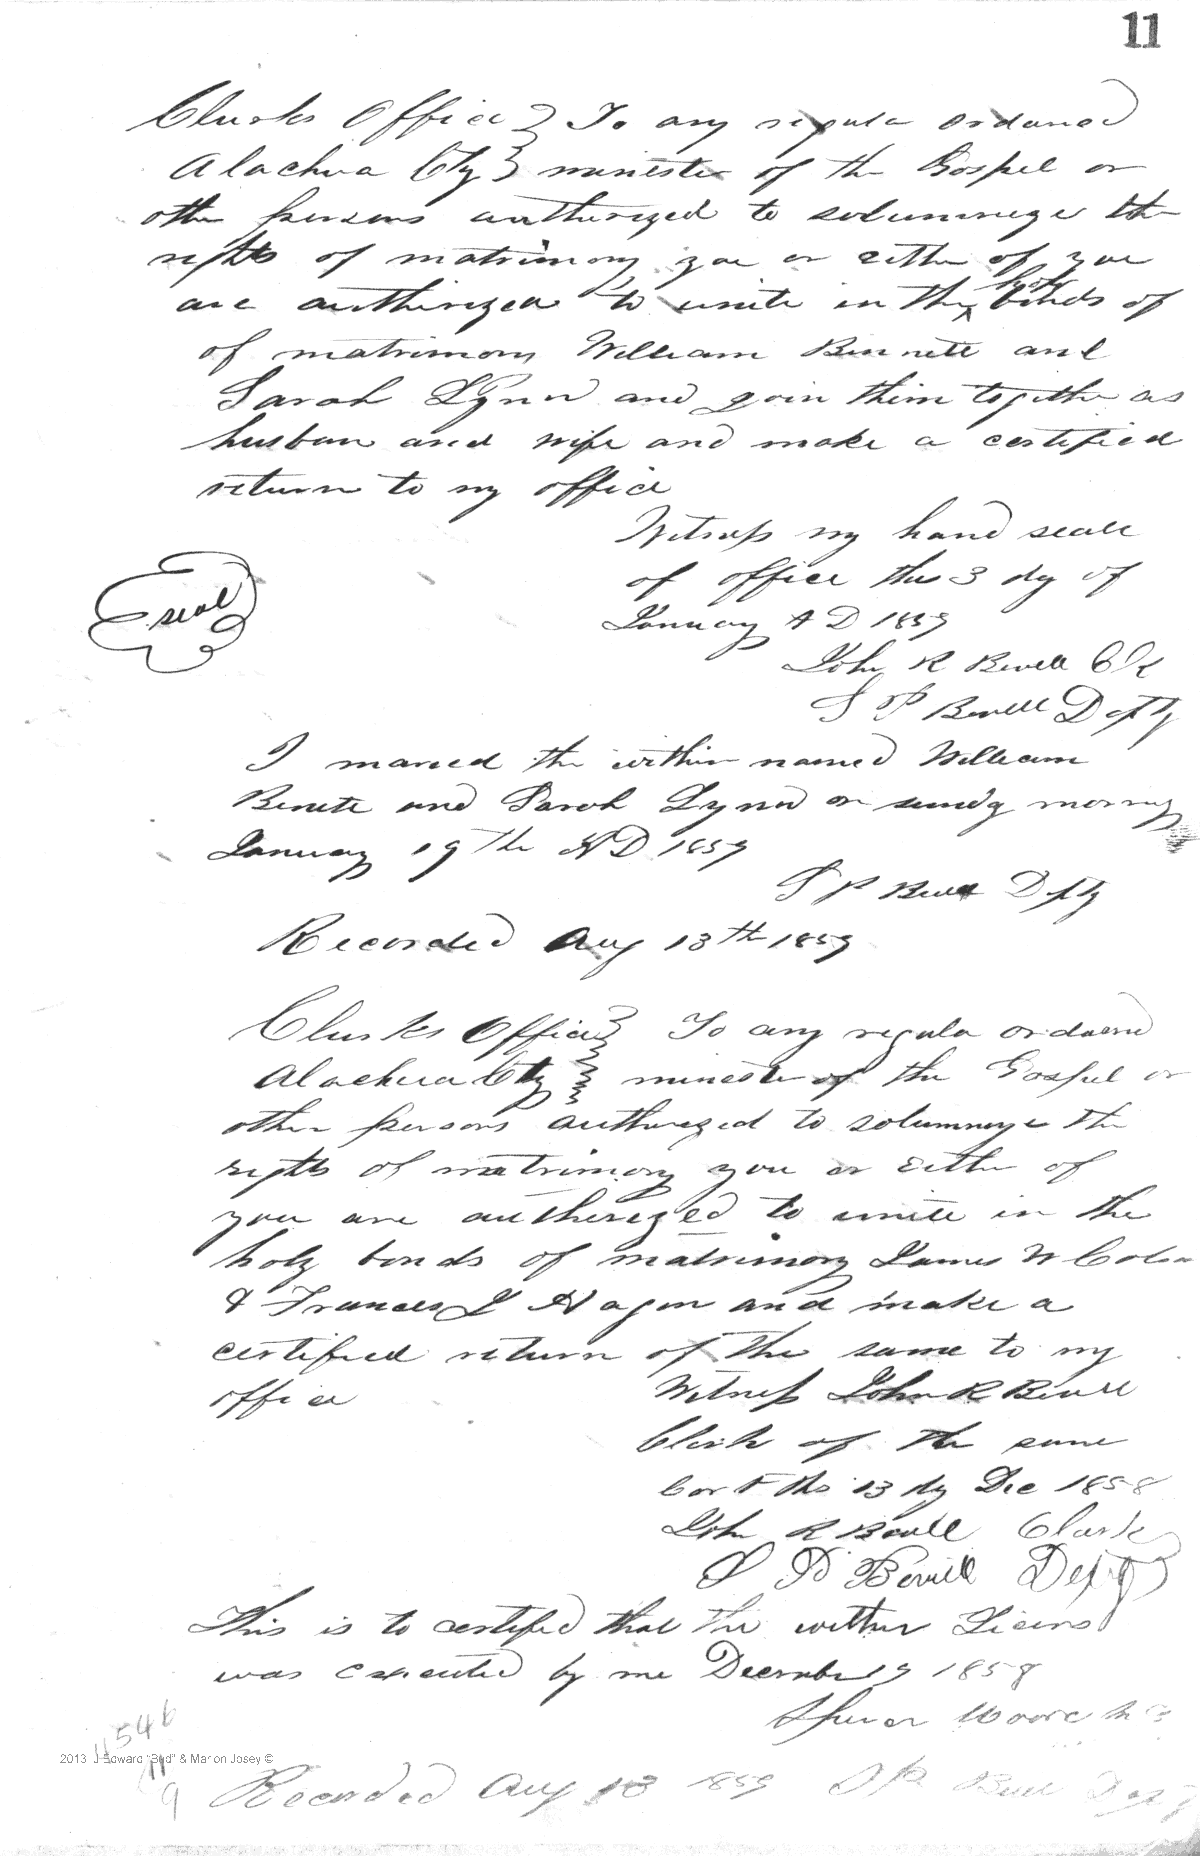 11
Clurks Office } To any regula ordaned
Alachua Cty } minister of the Gospel or
othe persons authurized to solumnize the
rights of matrimony you or eithe of you
are authirized to unite in the holy bonds of
of matrimony William Bennett and
Sarah Lynn and goin them togethe as
husban and wife and make a certified
return to my office
Witness my hand seale
of office this 3 dy of
January A D 1859
seal
John R Bevill Clk
S P Bevill Depty
I maried the within named William
Benete and Sarah Lynn on morning
January 19th AD 1859
S P Bevill Dpty
Recorded Aug 13th 1859
Clurks Office } To any regula ordaend
Alachua Cty } ministe of the Gospel or
other persons authurized to solumnize the
rights of matrimony you or eithe of
you are autherized to unite in the
holy bonds of matrimony James W
& Frances J Hagin and make a
certified return of the same to my
office Witness John R Bevill
Clerk of the same
Cort this 13 dy Dec 1858
John R Bevill Clark
S P Bevill Depty
This is to certified that the within Licens
was executed by me December 19 1858
Moore
11546
11
9
2013 J Edward "Bud" & Marion Josey ©
Recorded Aug 13 1859 S P Bevill Depty